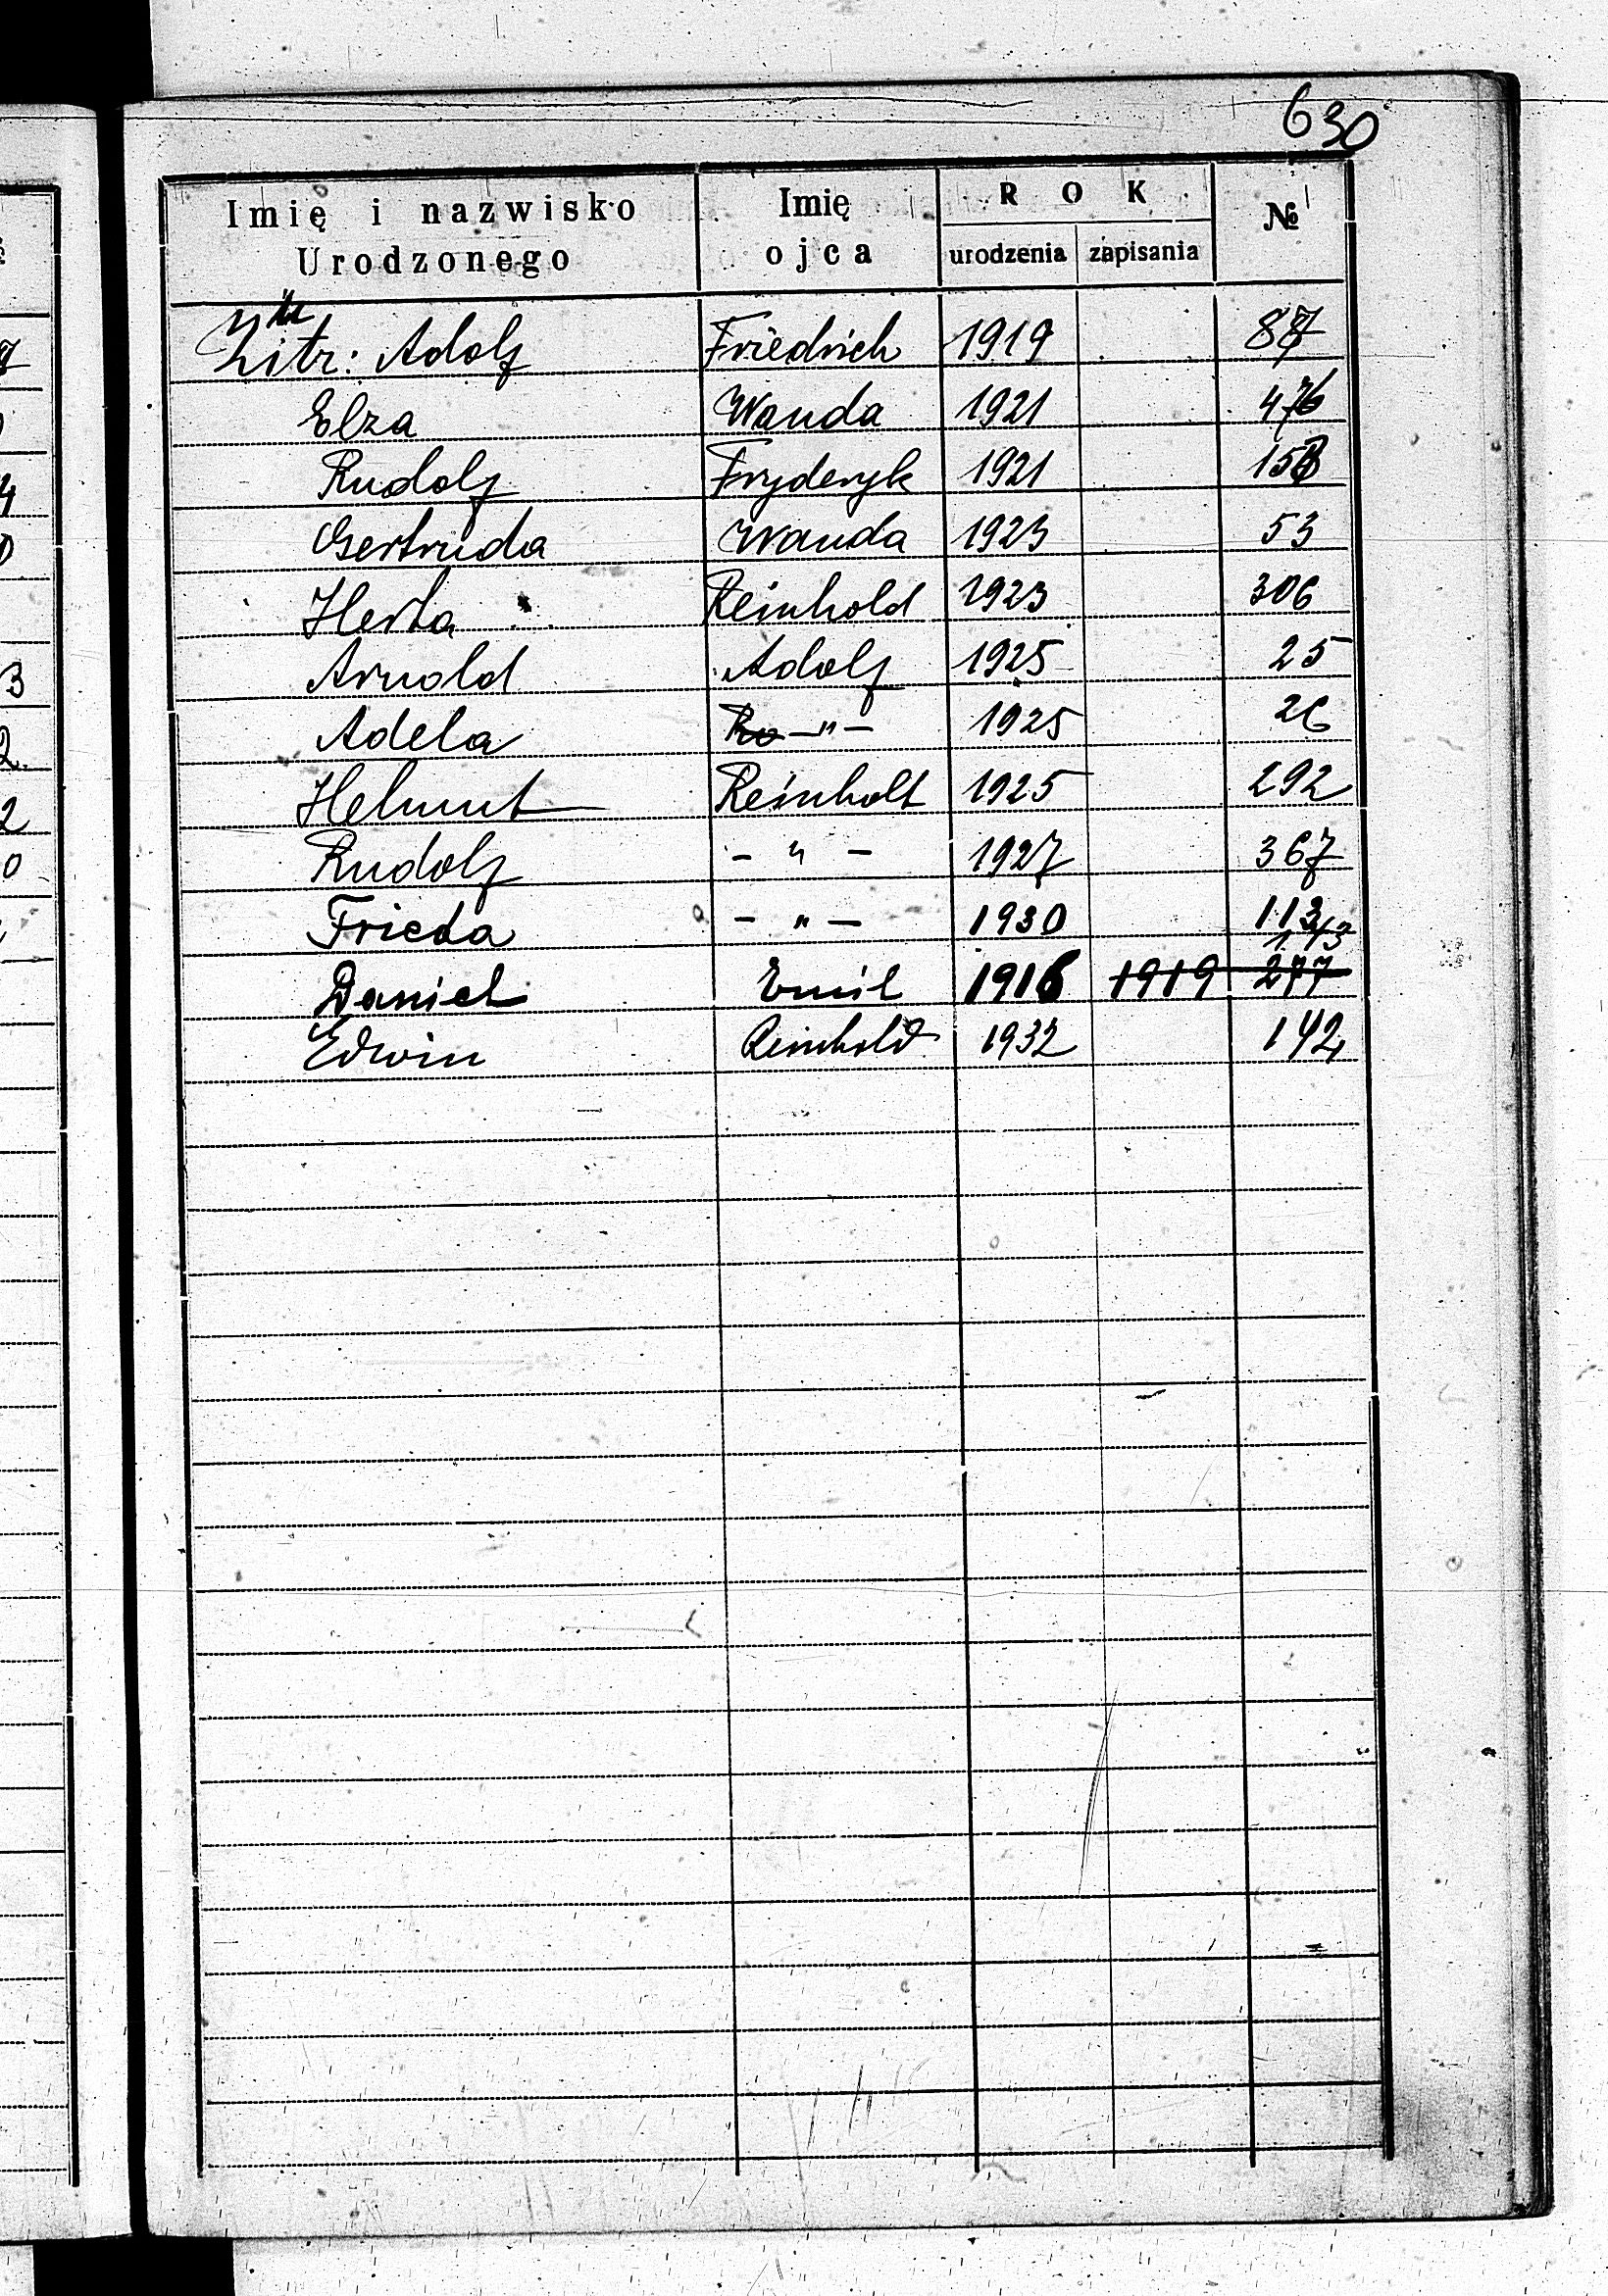 630
Imię i nazwisko Urodzonego Imię ojca ROK urodzenia zapisania №
Zitr: Adolf Friedrich 1919 87
Elza Wanda 1921 476
Rudolf Fryderyk 1921 158
Gertruda Wanda 1923 53
Herta Reinhold 1923 306
Arnold Adolf 1925 25
Adela Ro —"— 1925 26
Helmut Reinholt 1925 292
Rudolf — " — 1927 367
Frieda — " — 1930 113
173
Daniel Emil 1916 1919 277
Edwin Reinhold 1932 142